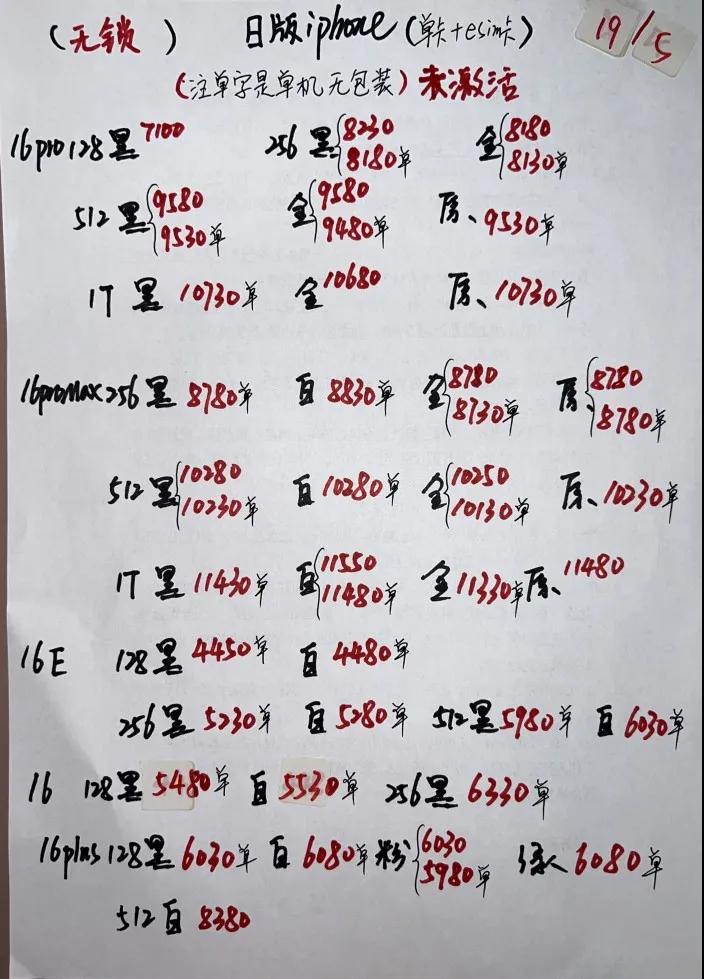 (无锁) 日版iphone(单卡+esim卡) 19/5
(注单字是单机无包装)未激活
16pro128黑7100 256黑{8230 8180单 金{8180 8130单
512黑{9580 9530单 金{9580 9480单 原、9530单
1T黑10730单 金10680 原、10730单
16proMax256黑8780单 白8830单 金{8780 8730单 原、{8780 8780单
512黑{10280 10230单 白10280单 金{10250 10130单 原、10230单
1T黑11430单 白{11550 11480单 金11330单 原、11480
16E 128黑4450单 白4480单
256黑5230单 白5280单 512黑5980单 白6030单
16 128黑5480单 白5530单 256黑6330单
16plus128黑6030单 白6080单 粉{6030 5980单 绿6080单
512白8380